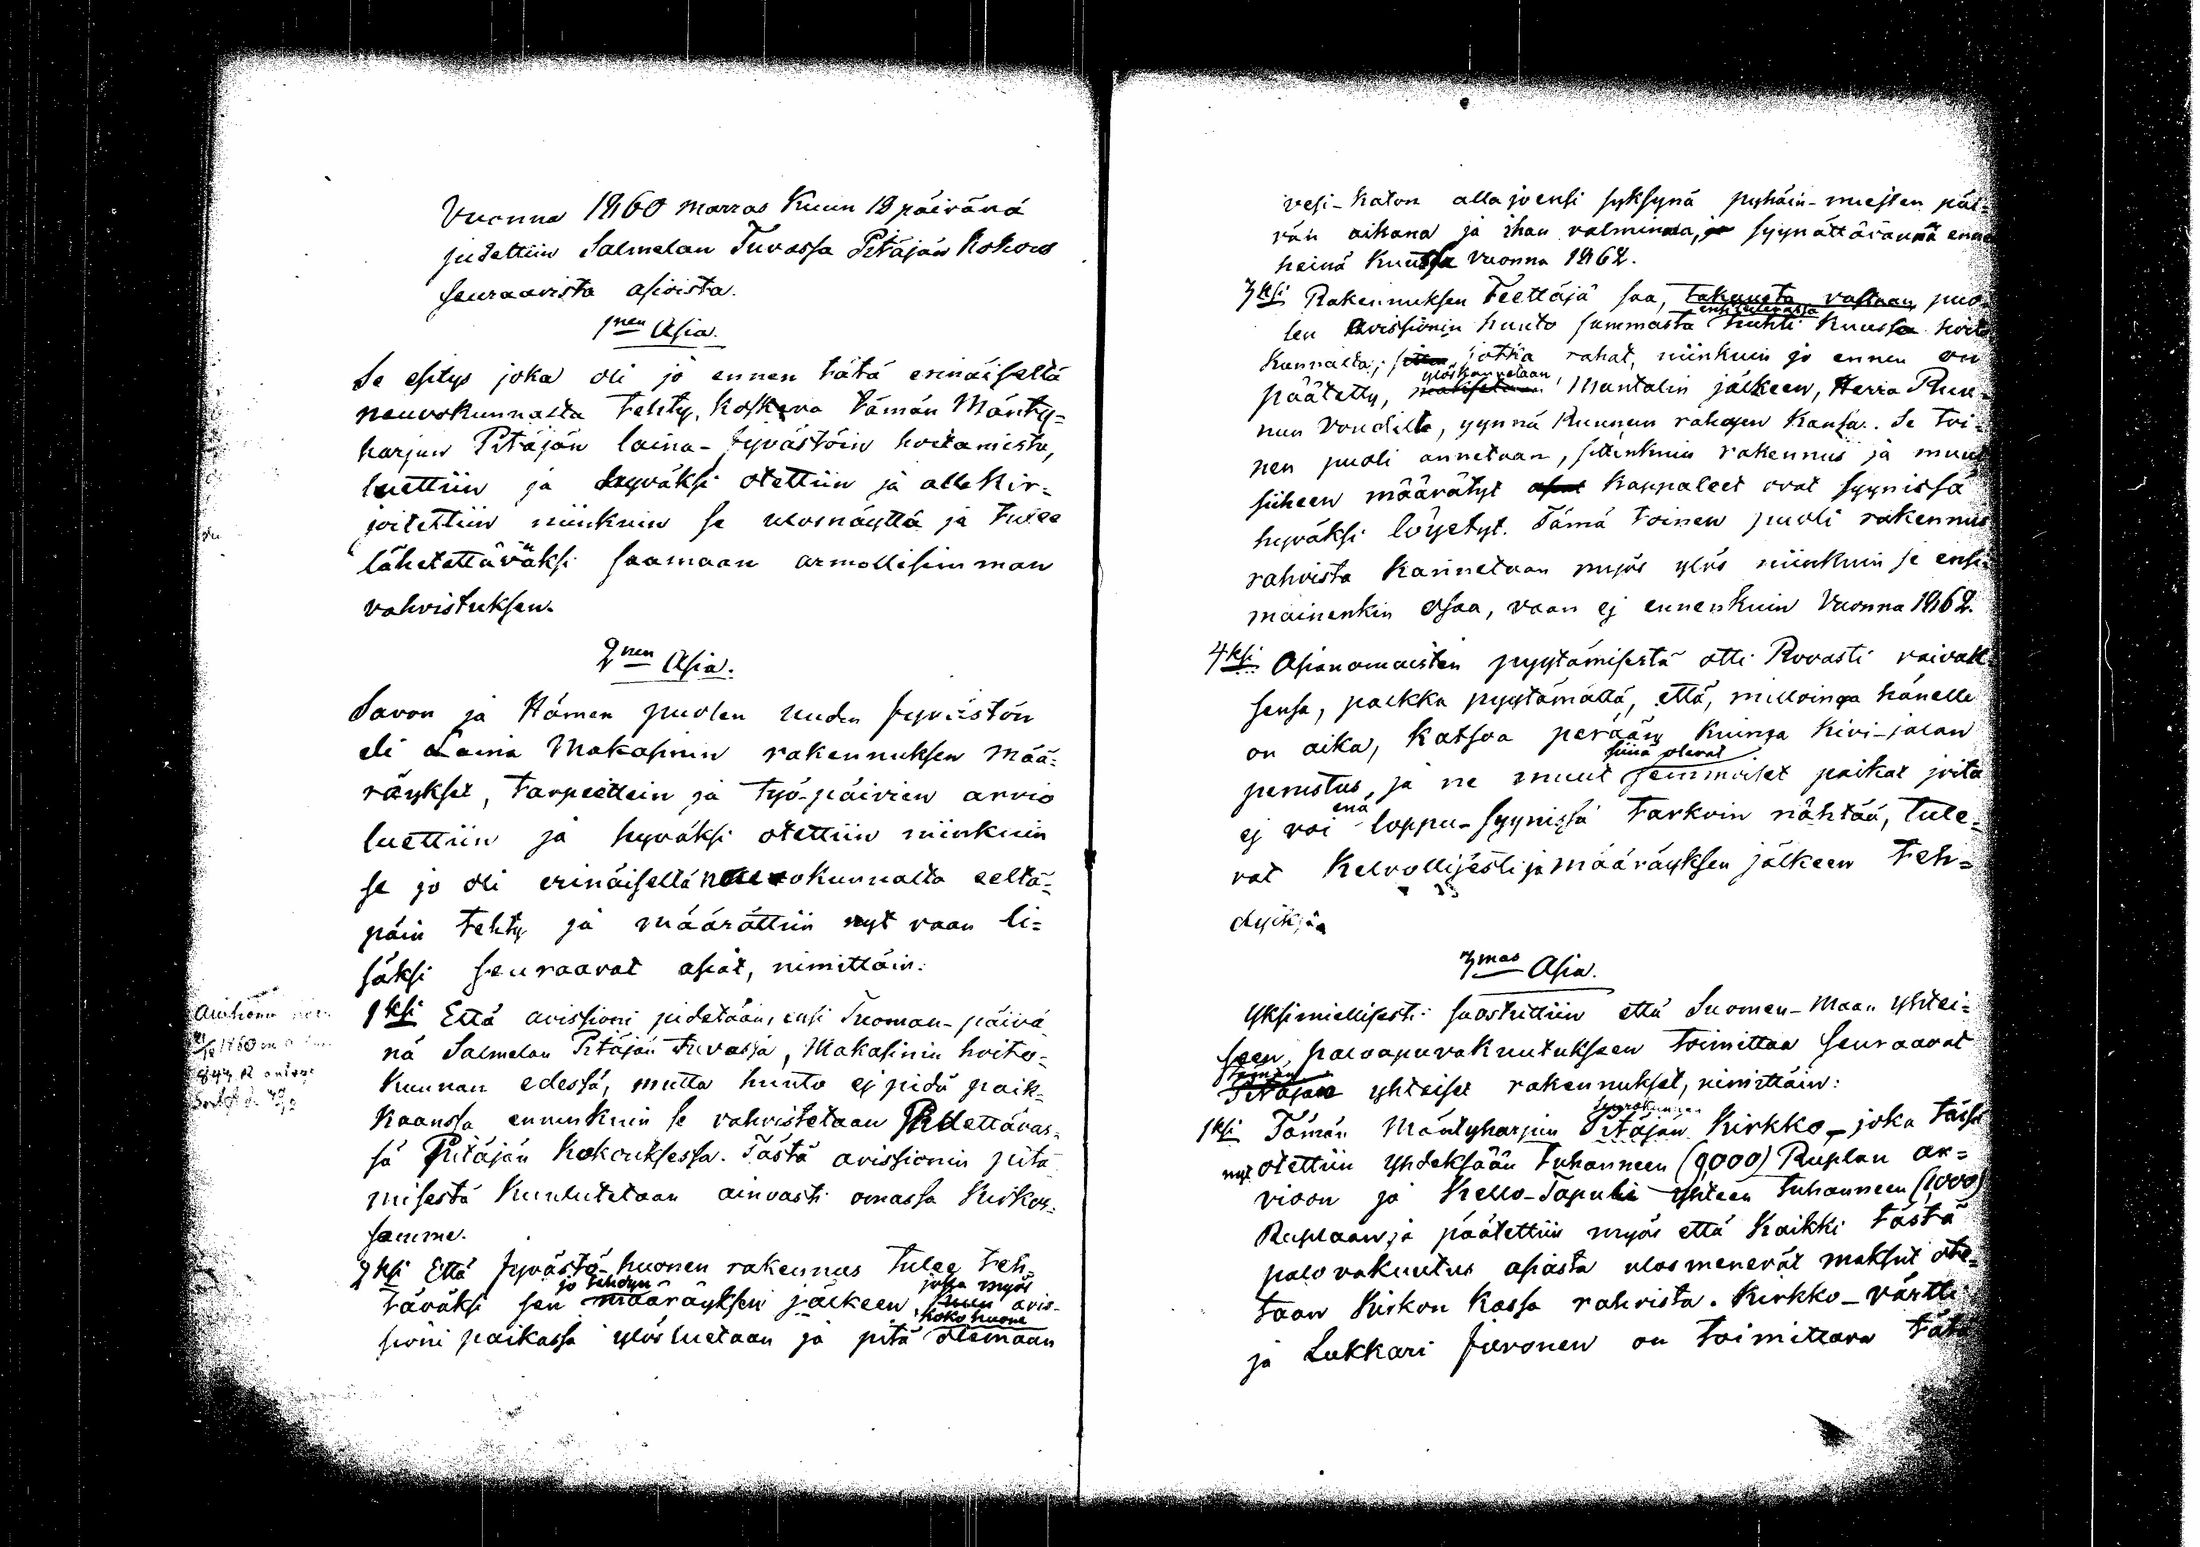 Vuonna 1860 marras Kuun 18 päivänä
pidettiin Salmelan Tuvassa Pitäjän Kokous
seuraavista asioista.
1nen Asia.
Se esitys joka oli jo ennen tätä erinäiseltä
neuvokunnalta tehty, koskeva tämän Mänty-
harjun Pitäjän laina-Jyvästöin hoitamista,
luettiin ja hyväksi otettiin ja allekir-
joitettiin niinkuin se ulosnäyttä ja tulee
lähetettäväksi saamaan armollisimman
vahvistuksen.
2nen Asia.
Savon ja Hämen puolen uuden Jyvästön
eli Laina Makasinin rakennuksen mää-
räykset, tarpeittein ja työ-päivien arvio
luettiin ja hyväksi otettiin niinkuin
se jo oli erinäiseltä neuvokunnalta eeltä-
päin tehty ja määrättiin nyt vaan li-
säksi seuraavat asiat, nimittäin:
1ksi Että avissioni pidetään, ensi Tuoman-päivä
nä Salmelan Pitäjän tuvassa, Makasinin hoito-
kunnan edessä, mutta huuto ej pidä paik-
kaansa ennenkuin se vahvistetaan Pidettäväs-
sä Pitäjän Kokouksessa. Tästä avissionin pitä
misestä Kuulutetaan ainoasti omassa Kirkos-
samme.
2ksi Että Jyvästö-huonen rakennus tulee teh-
jo tehdyn jossa myös
täväksi sen määräyksen jälkeen, avis-
koko huone
sioni paikassa ylös luetaan ja pitä olemaan
vesi-katon alla jo ensi syksynä pyhäin-miesten päi-
vän aikana ja ihan valminna, ja syynättävännä enne
heinä Kuussa vuonna 1862.
3ksi Rakennuksen Teettäjä saa, takausta vastaan, puo-
ensi tulevassa
len avissionin huuto summasta huhti Kuussa hoito
Kunnalta; jotka rahat, niinkuin jo ennen on
ylöskannetaan
päätetty, Mantalin jälkeen, Herra Ruu-
nun Voudilta, yynnä Ruunun rahojen Kansa. Se toi-
nen puoli annetaan, sittenkuin rakennus ja muut
siiheen määrätyt asiat Kappaleet ovat syynissä
hyväksi löyetyt. Tämä toinen puoli rakennus
rahoista Kannetaan myös ylös niinkuin se ensi-
mäinenkin Osaa, vaan ej ennenkuin Vuonna 1862.
4ksi Asianomaisten pyytämisestä otti Rovasti vaivak-
sensa, palkka pyytämättä, että, milloinga hänelle
on aika, katsoa perään Kuinga Kivi-jalan
siinä olevat
perustus, ja ne muut semmoiset paikat joita
enä
ej voi loppu-syynissä tarkoin nähtää, tule-
vat Kelvollisesti ja määräyksen jälkeen teh-
dyiksi.
3mas Asia.
Yksimielisesti suostuttiin että Suomen-Maan yhtei-
seen, paloapuvakuutukseen toimittaa seuraavat
tämän
Pitäjän yhteiset rakennukset, nimittäin:
seurakunnan
1ksi Tämän Mäntyharjun Pitäjän Kirkko, joka tässä
nyt otettiin yhdeksään tuhanneen (9,000) Ruplan ar-
vioon ja Kello-Tapuli yhteen tuhanneen (1,000)
Ruplaan, ja päätettiin myös että Kaikki tästä
palovakuutus asiasta ulosmenevät maksut ote-
taan Kirkon Kassa rahoista. Kirkko-värtti
ja Lukkari on toimittava tätä